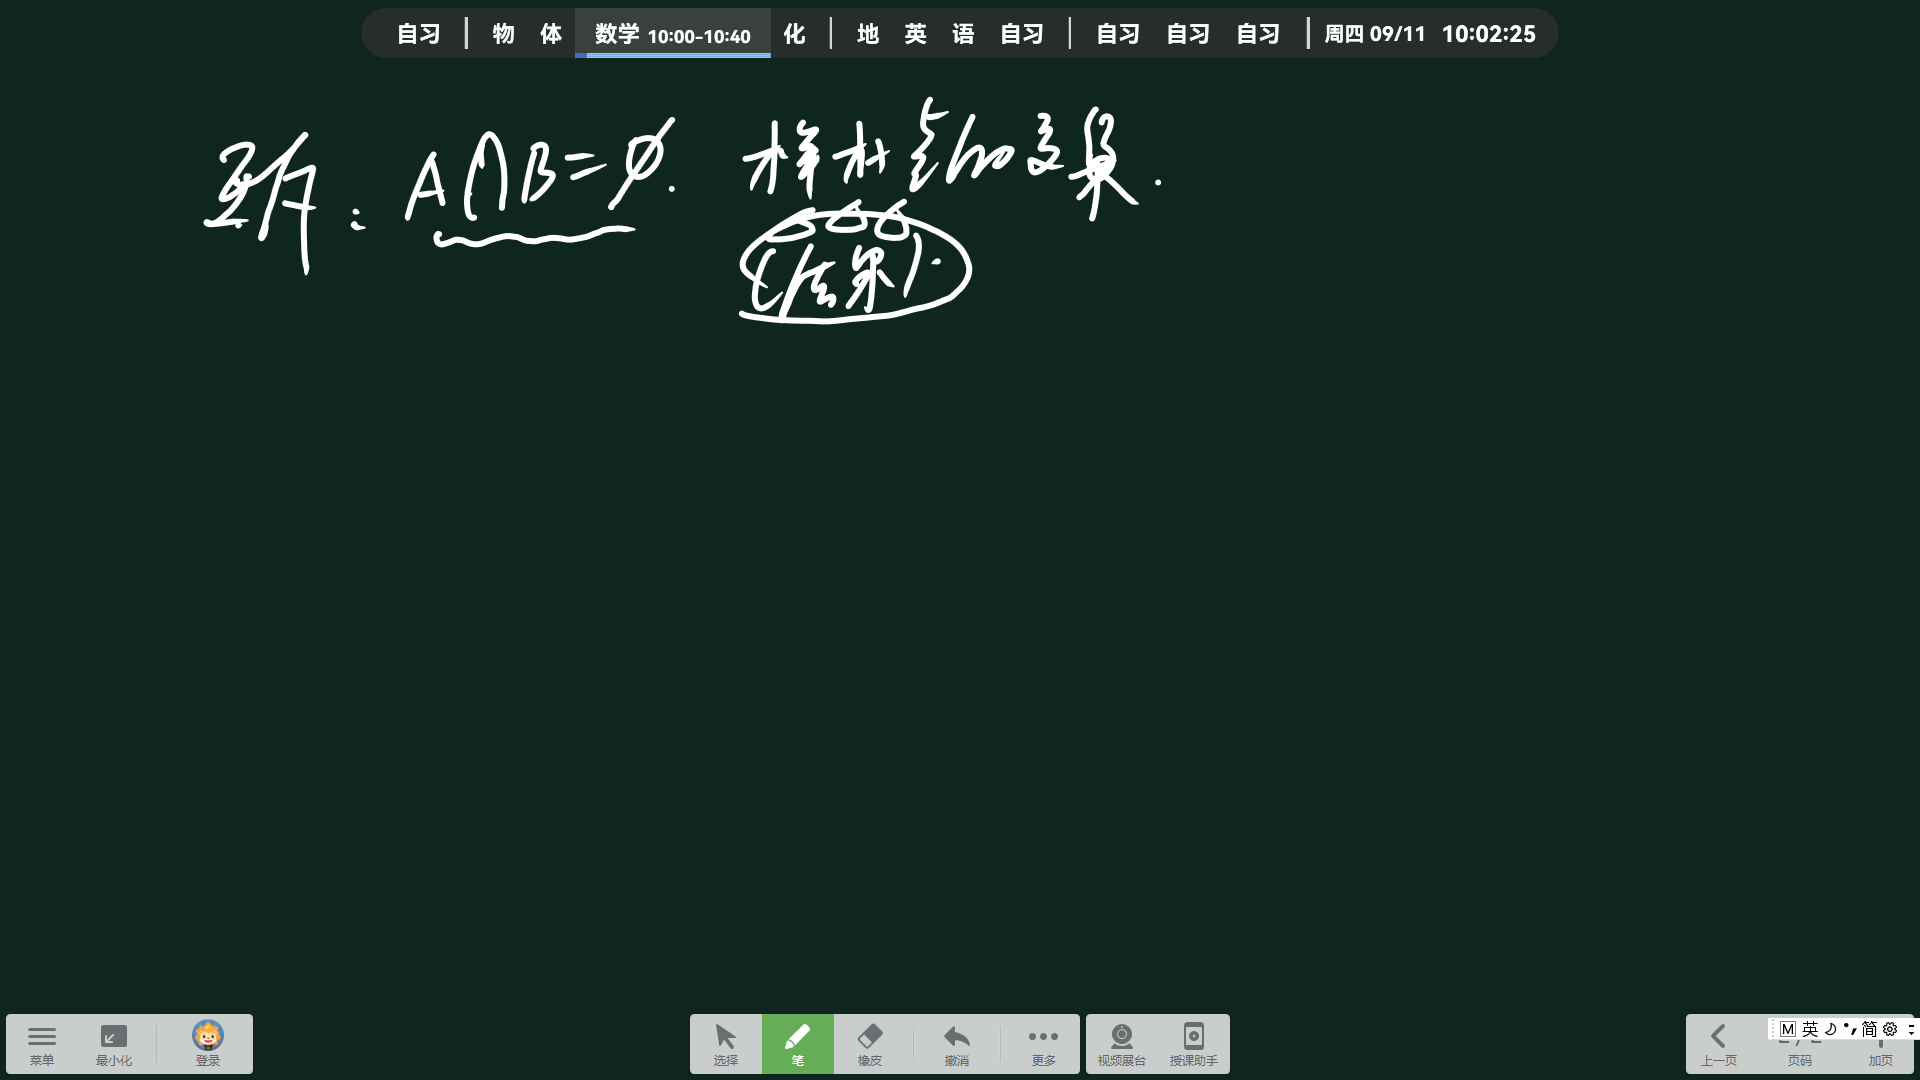 自习 | 物 体 数学 10:00-10:40 化 | 地 英 语 自习 | 自习 自习 自习 | 周四 09/11 10:02:25
互斥: A∩B=∅. 样本点的交集.
(结果).
菜单 最小化 登录 选择 笔 橡皮 撤消 更多 视频展台 授课助手 上一页 页码 加页
M 英 简